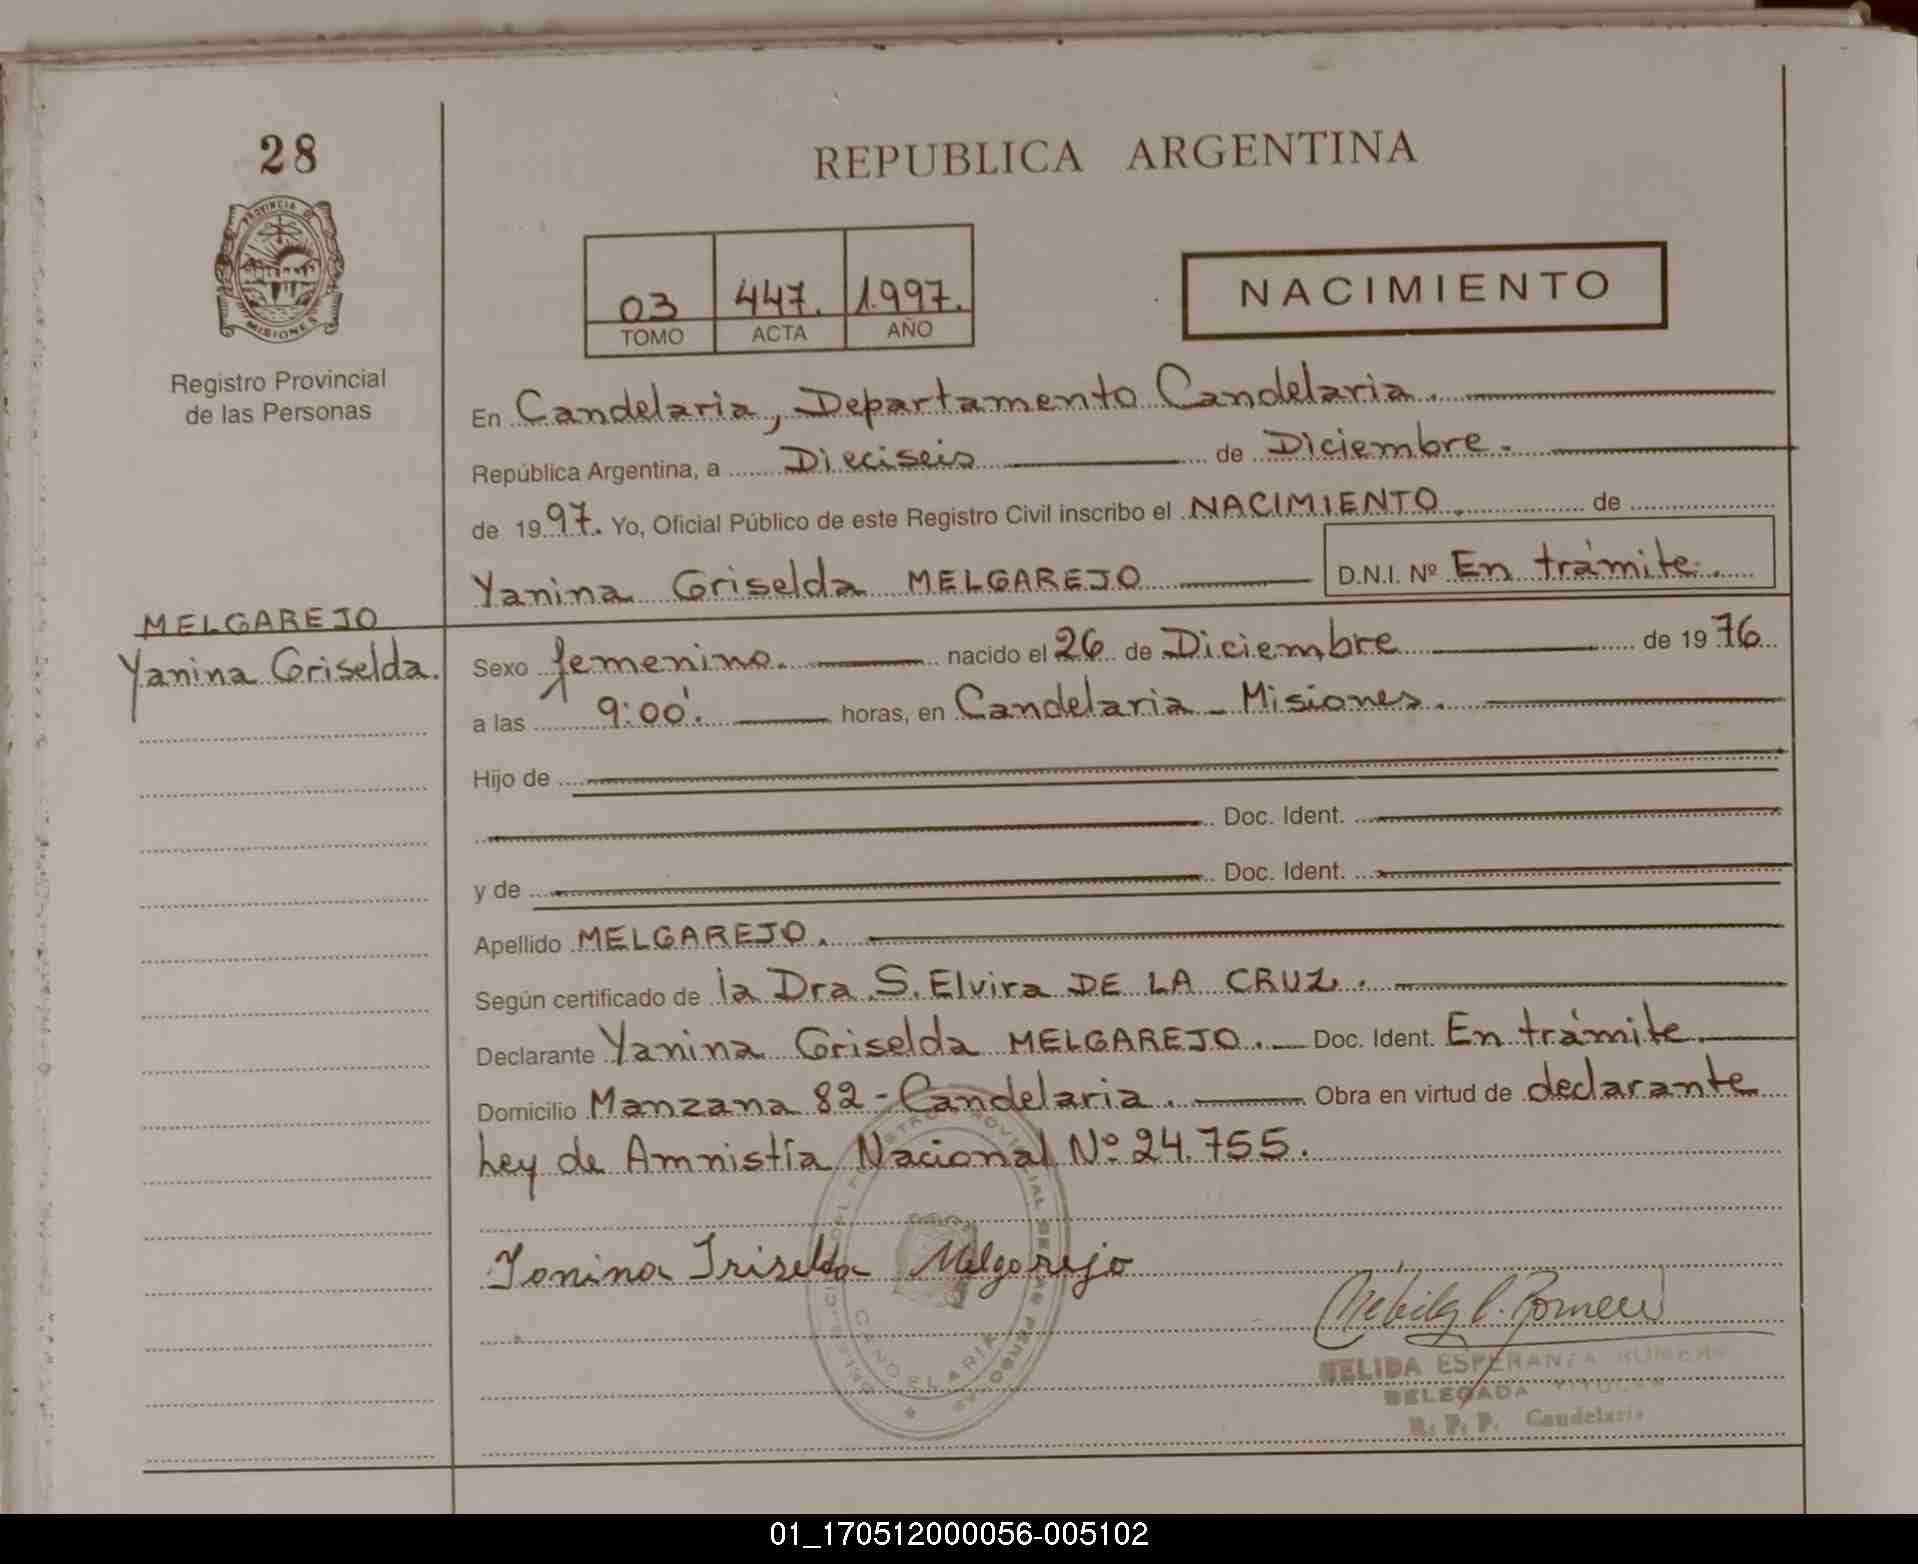 28
REPUBLICA ARGENTINA
PROVINCIA DE
MISIONES
Registro Provincial
de las Personas
03 447. 1.997.
TOMO ACTA AÑO
NACIMIENTO
En Candelaria, Departamento Candelaria.
República Argentina, a Dieciseis de Diciembre.
de 1997. Yo, Oficial Público de este Registro Civil inscribo el NACIMIENTO. de
Yanina Griselda MELGAREJO D.N.I. Nº En trámite.
MELGAREJO
Yanina Griselda.
Sexo femenino. nacido el 26 de Diciembre de 1976
a las 9:00'. horas, en Candelaria - Misiones.
Hijo de
Doc. Ident.
y de Doc. Ident.
Apellido MELGAREJO.
Según certificado de la Dra. S. Elvira DE LA CRUZ.
Declarante Yanina Griselda MELGAREJO. Doc. Ident. En trámite.
Domicilio Manzana 82 - Candelaria. Obra en virtud de declarante
Ley de Amnistía Nacional Nº 24.755.
Yonina Triselda Melgorejo
CANDELARIA
NELIDA ESPERANZA ROMERO
DELEGADA TITULAR
R. P. P. Candelaria
01_170512000056-005102